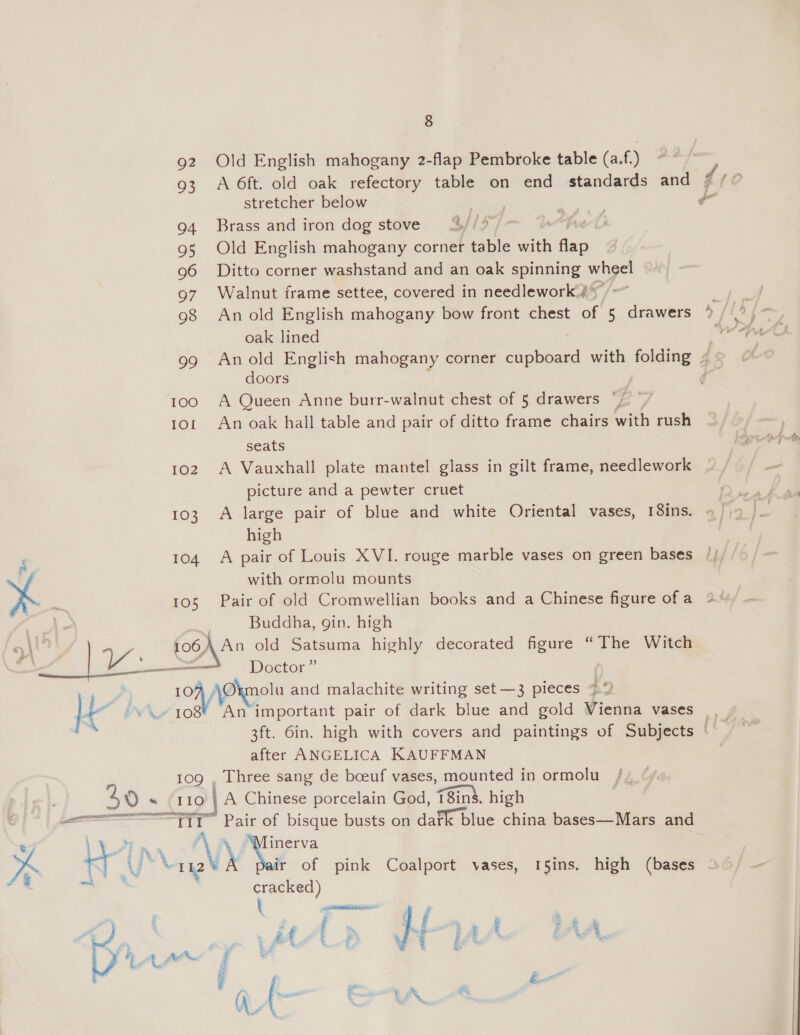 8
92 Old English mahogany 2-flap Pembroke table (a.f.)
93 A 6ft. old oak refectory table on end standards and
stretcher below
94 Brass and iron dog stove
95 Old English mahogany corner table with flap
96 Ditto corner washstand and an oak spinning wheel
97 Walnut frame settee, covered in needlework
98 An old English mahogany bow front chest of 5 drawers
oak lined
99 An old English mahogany corner cupboard with folding
doors
100 A Queen Anne burr-walnut chest of 5 drawers
101 An oak hall table and pair of ditto frame chairs with rush
seats
102 A Vauxhall plate mantel glass in gilt frame, needlework
picture and a pewter cruet
103 A large pair of blue and white Oriental vases, 18ins.
high
104 A pair of Louis XVI. rouge marble vases on green bases
with ormolu mounts
105 Pair of old Cromwellian books and a Chinese figure of a
Buddha, 9in. high
106 An old Satsuma highly decorated figure “The Witch
Doctor”
107 Ormolu and malachite writing set—3 pieces
108 An important pair of dark blue and gold Vienna vases
3ft. 6in. high with covers and paintings of Subjects
after ANGELICA KAUFFMAN
109 Three sang de bœuf vases, mounted in ormolu
30 110 A Chinese porcelain God, 18ins. high
111 Pair of bisque busts on dark blue china bases—Mars and
Minerva
112 A pair of pink Coalport vases, 15ins. high (bases
cracked)